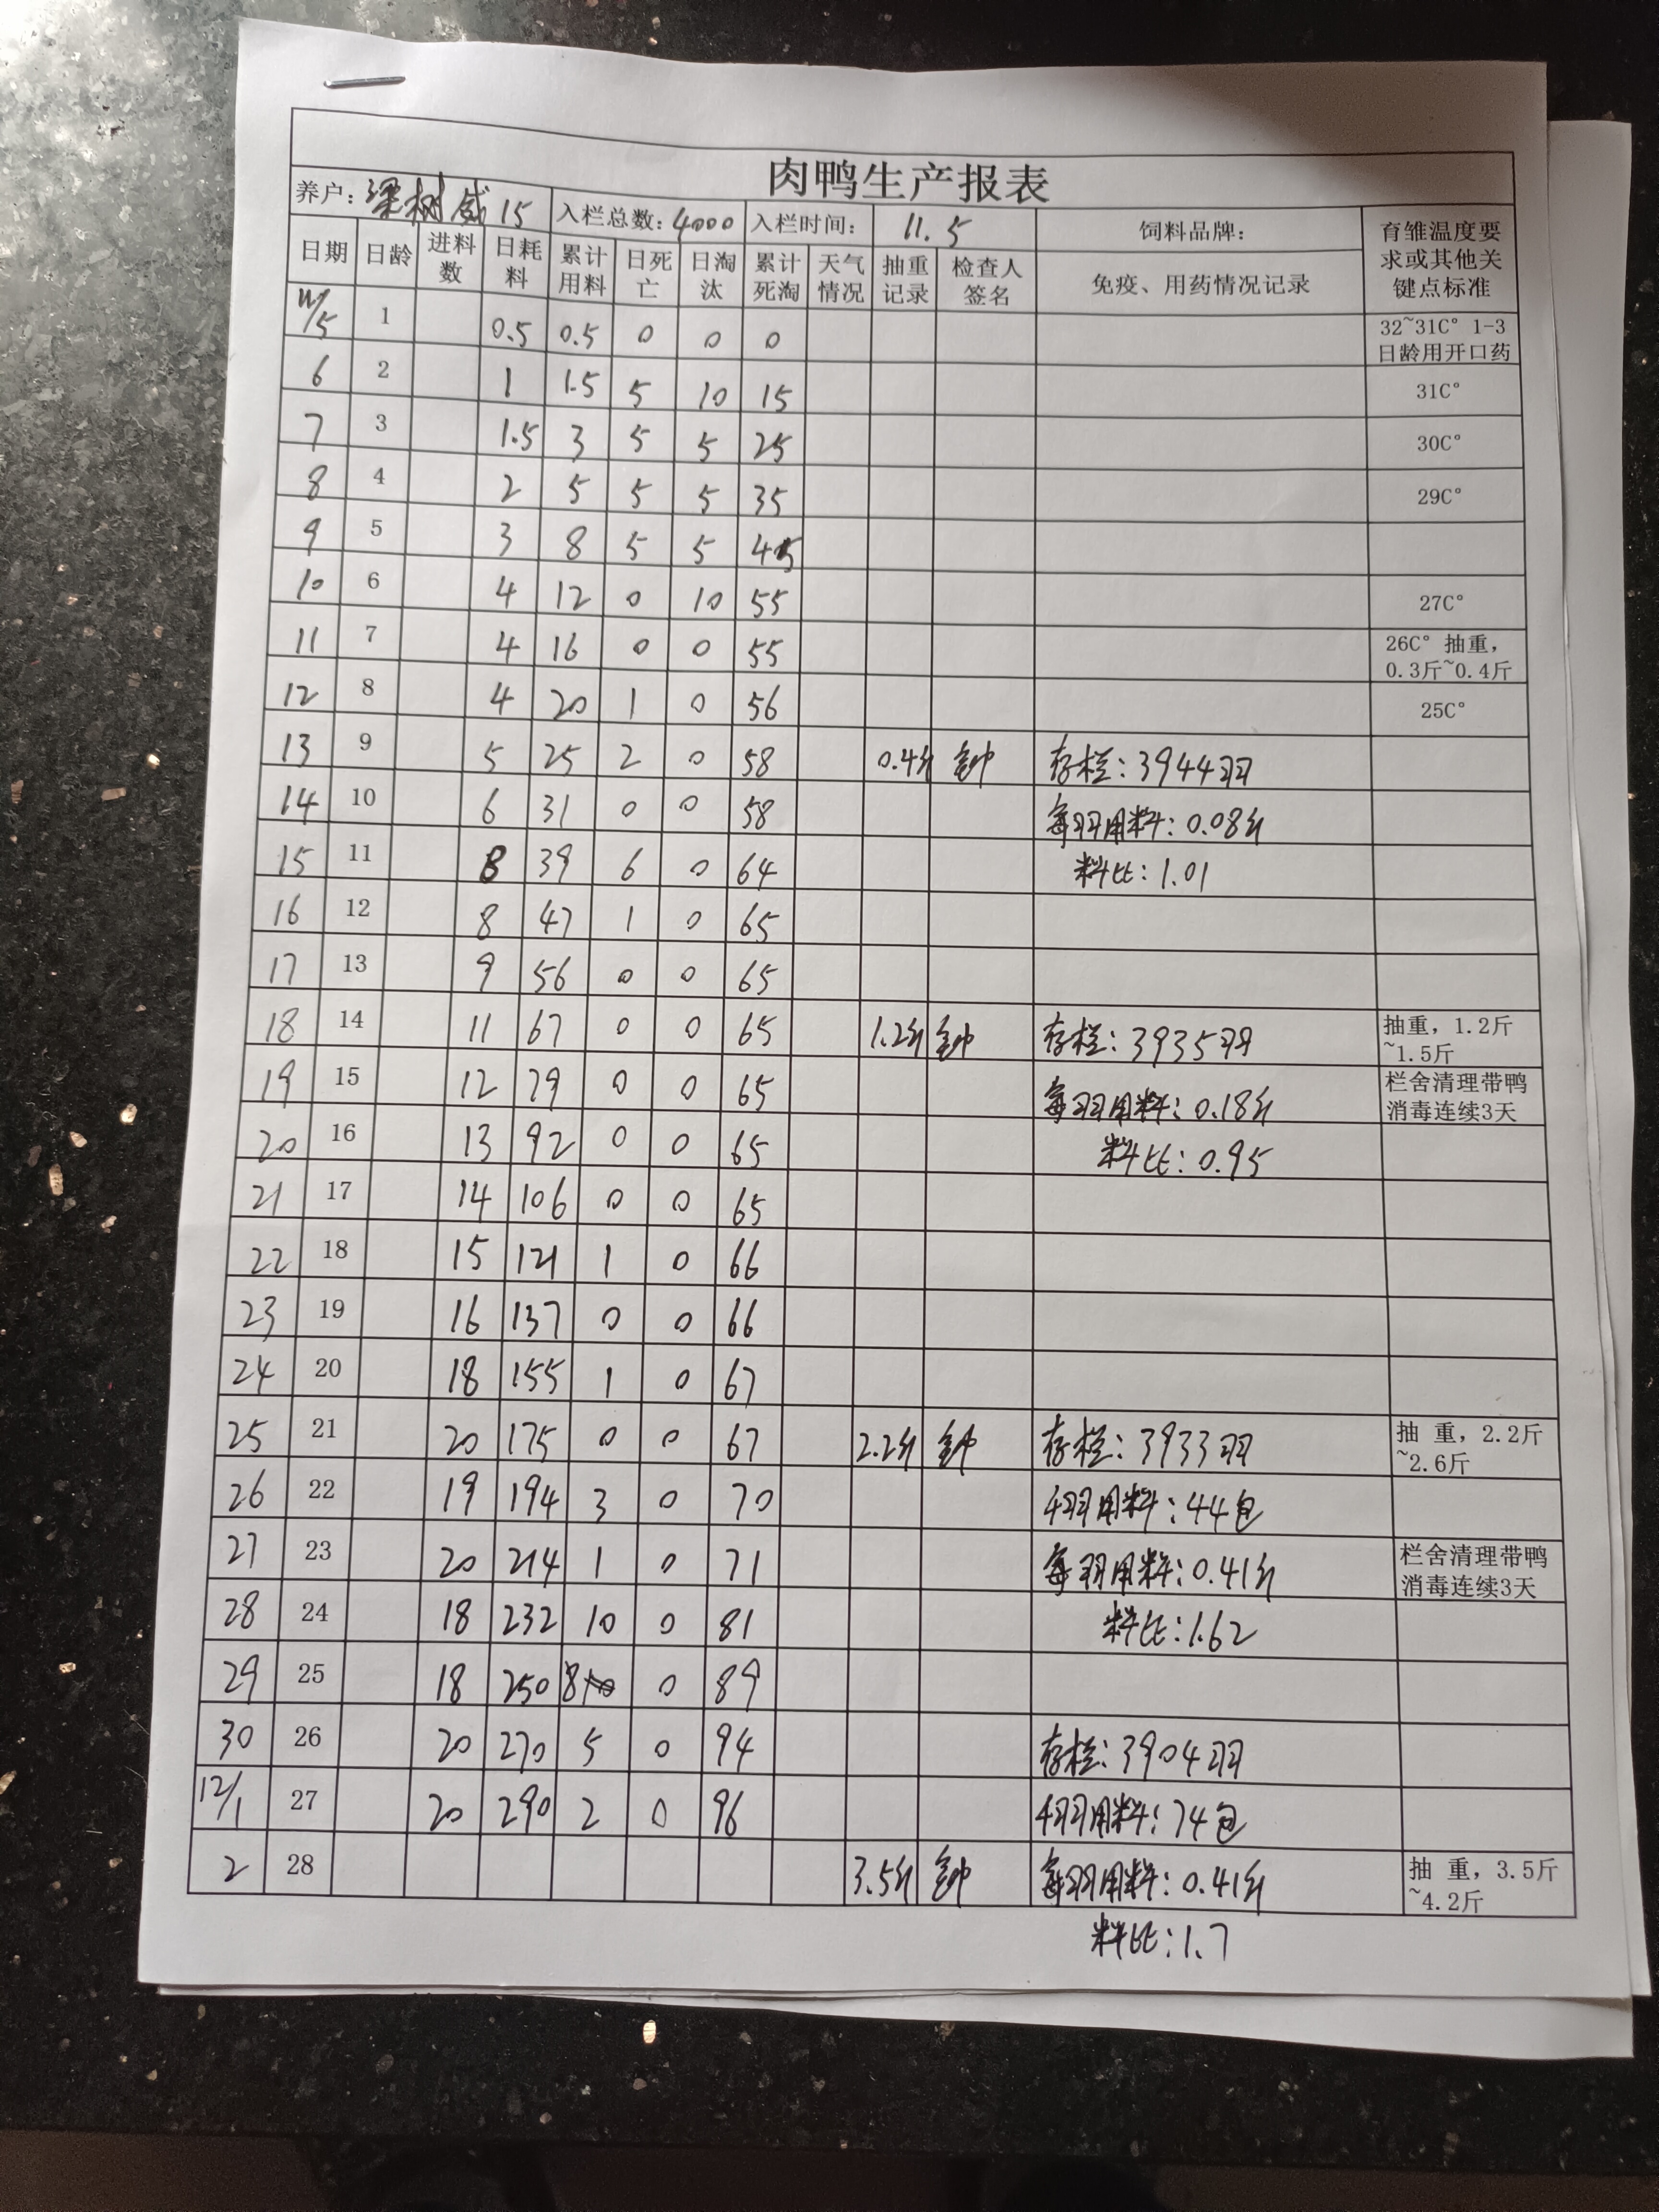 肉鸭生产报表
养户：梁树感 15 入栏总数：4000 入栏时间： 11.5 饲料品牌： 育雏温度要求或其他关键点标准
日期 日龄 进料数 日耗料 累计用料 日死亡 日淘汰 累计死淘 天气情况 抽重记录 检查人签名 免疫、用药情况记录
11/5 1 0.5 0.5 0 0 0 32~31C° 1-3日龄用开口药
6 2 1 1.5 5 10 15 31C°
7 3 1.5 3 5 5 25 30C°
8 4 2 5 5 5 35 29C°
9 5 3 8 5 5 45
10 6 4 12 0 10 55 27C°
11 7 4 16 0 0 55 26C° 抽重，0.3斤~0.4斤
12 8 4 20 1 0 56 25C°
13 9 5 25 2 0 58 0.4斤 钟 存栏：3944羽
14 10 6 31 0 0 58 每羽用料：0.08斤
15 11 8 39 6 0 64 料比：1.01
16 12 8 47 1 0 65
17 13 9 56 0 0 65
18 14 11 67 0 0 65 1.2斤 钟 存栏：3935羽 抽重，1.2斤~1.5斤
19 15 12 79 0 0 65 每羽用料：0.18斤 栏舍清理带鸭消毒连续3天
20 16 13 92 0 0 65 料比：0.95
21 17 14 106 0 0 65
22 18 15 121 1 0 66
23 19 16 137 0 0 66
24 20 18 155 1 0 67
25 21 20 175 0 0 67 2.2斤 钟 存栏：3933羽 抽 重，2.2斤~2.6斤
26 22 19 194 3 0 70 千羽用料：44包
27 23 20 214 1 0 71 每羽用料：0.41斤 栏舍清理带鸭消毒连续3天
28 24 18 232 10 0 81 料比：1.62
29 25 18 250 8 0 89
30 26 20 270 5 0 94 存栏：3904羽
12/1 27 20 290 2 0 96 千羽用料：74包
2 28 3.5斤 钟 每羽用料：0.41斤 抽 重，3.5斤~4.2斤
料比：1.7